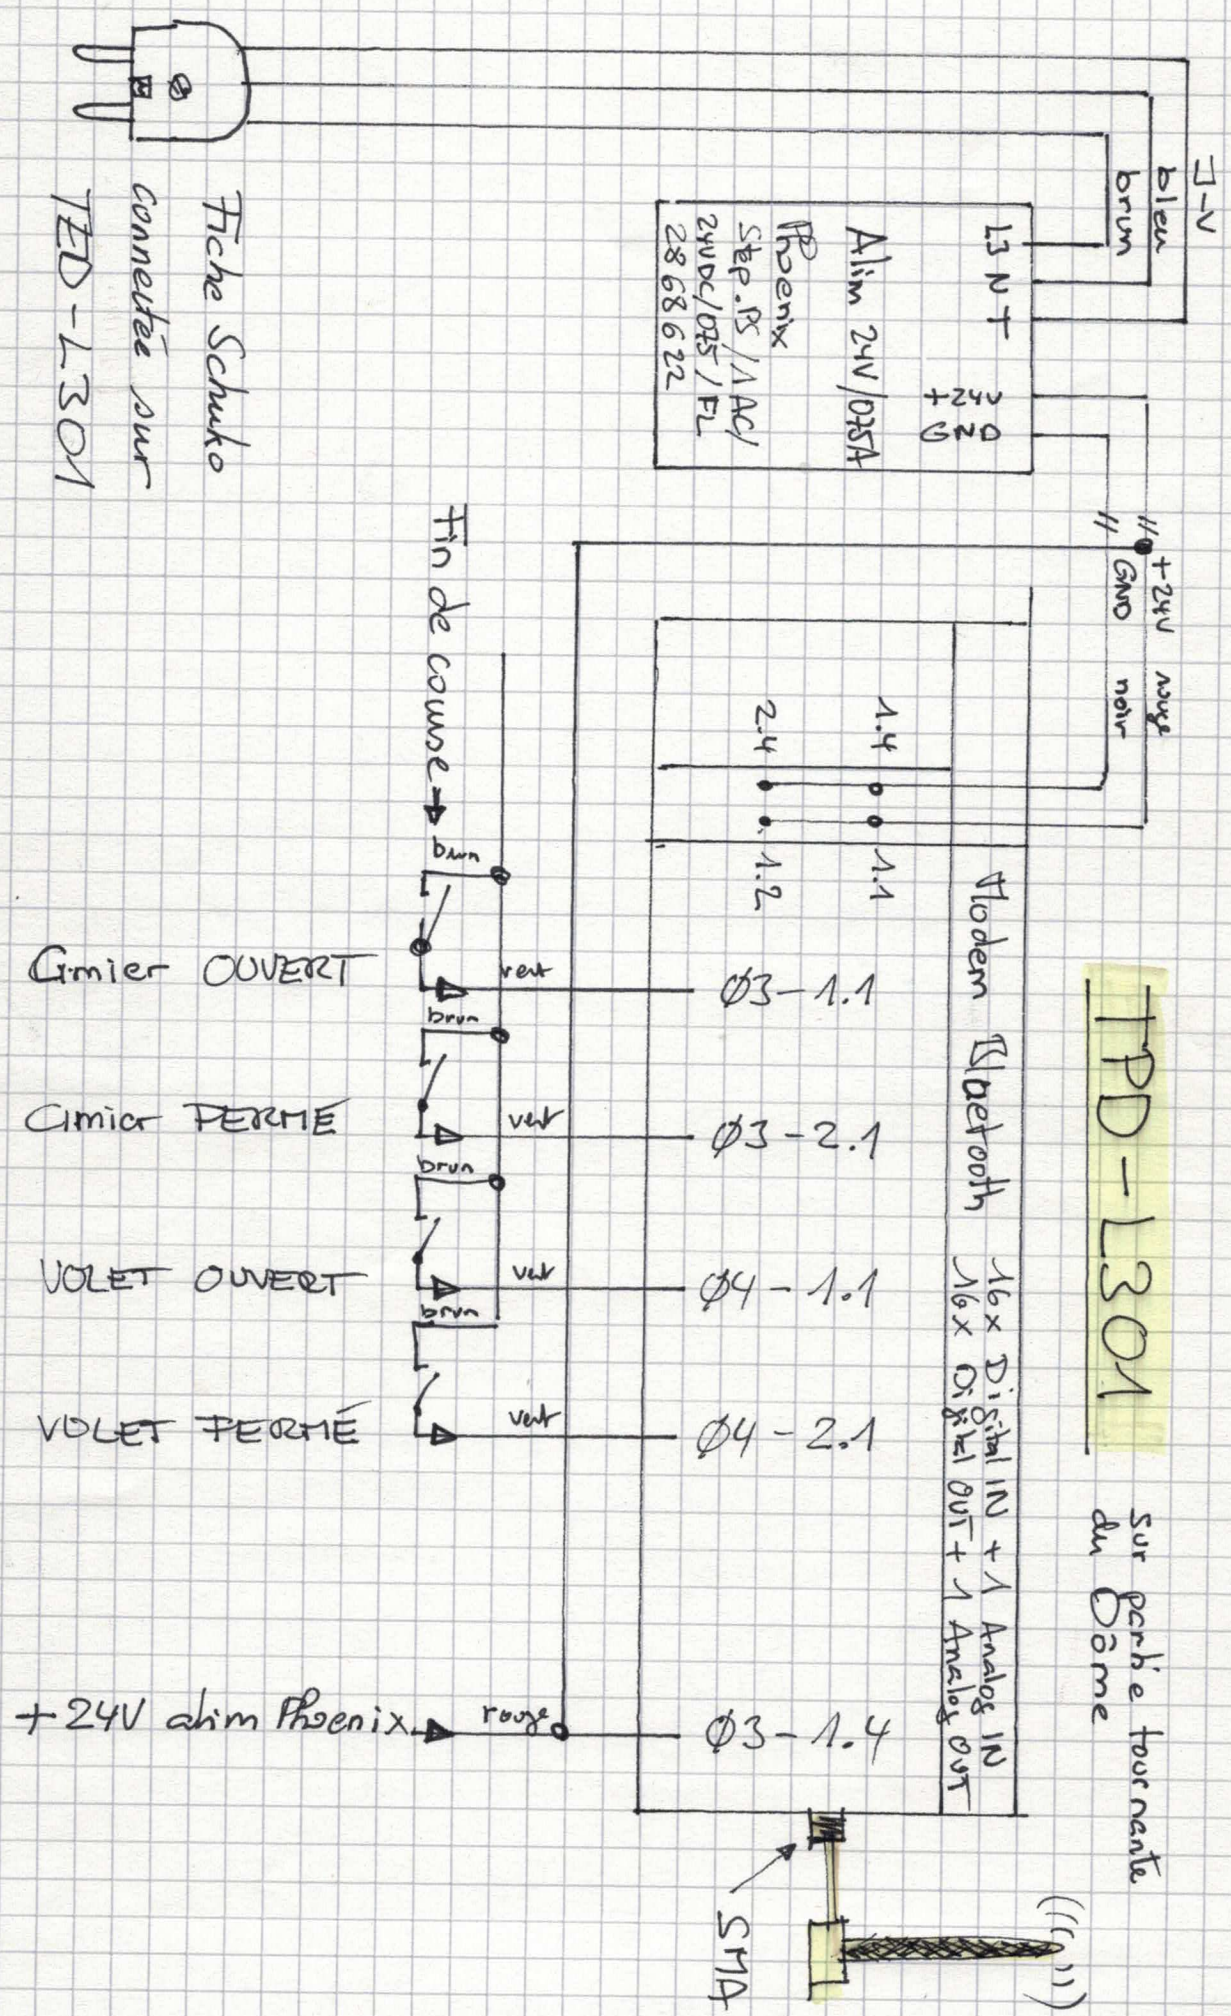 TPD-L301
sur partie tournante
du Dôme
J-V
bleu
brun
L3 N T
+24V
GND
Alim 24V/0,75A
Phoenix
Step.PS/1AC/
24VDC/0,75/FL
2868622
Fiche Schuko
connectée sur
TED-L301
+24V rouge
GND noir
1.4
2.4
1.1
1.2
Modem Bluetooth
16x Digital IN + 1 Analog IN
16x Digital OUT + 1 Analog OUT
Fin de course
brun
Cimier OUVERT
vert
Ø3-1.1
brun
Cimier FERMÉ
vert
Ø3-2.1
brun
VOLET OUVERT
vert
Ø4-1.1
brun
VOLET FERMÉ
vert
Ø4-2.1
+24V alim Phoenix
rouge
Ø3-1.4
SMA